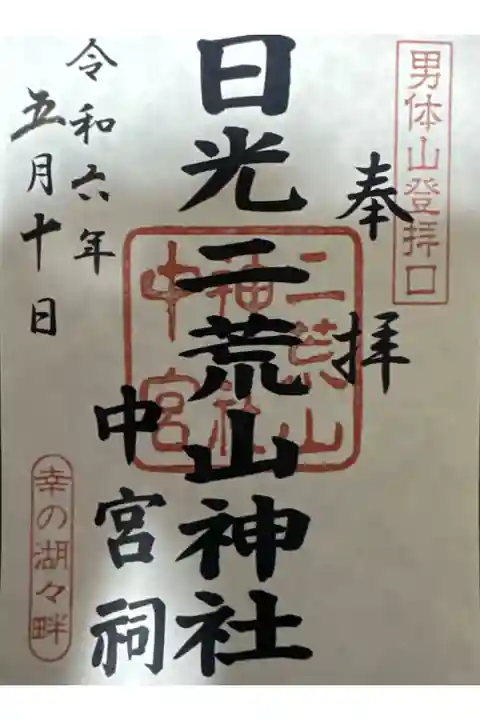 男体山登拝口
奉拝
日光二荒山神社
中宮祠
二荒山
神社
中宮
令和六年
五月十日
幸の湖々畔